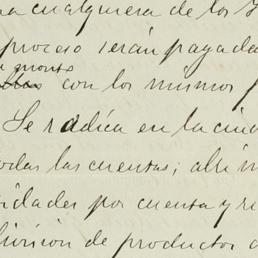 cualquiera de los
proceso serán pagada
con los mismos
Se radica en la ciud
odas las cuentas;
idades por cuenta y
división de productos